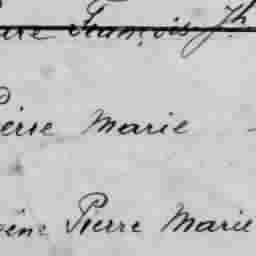 François Jh
Pierre Marie
Pierre Marie